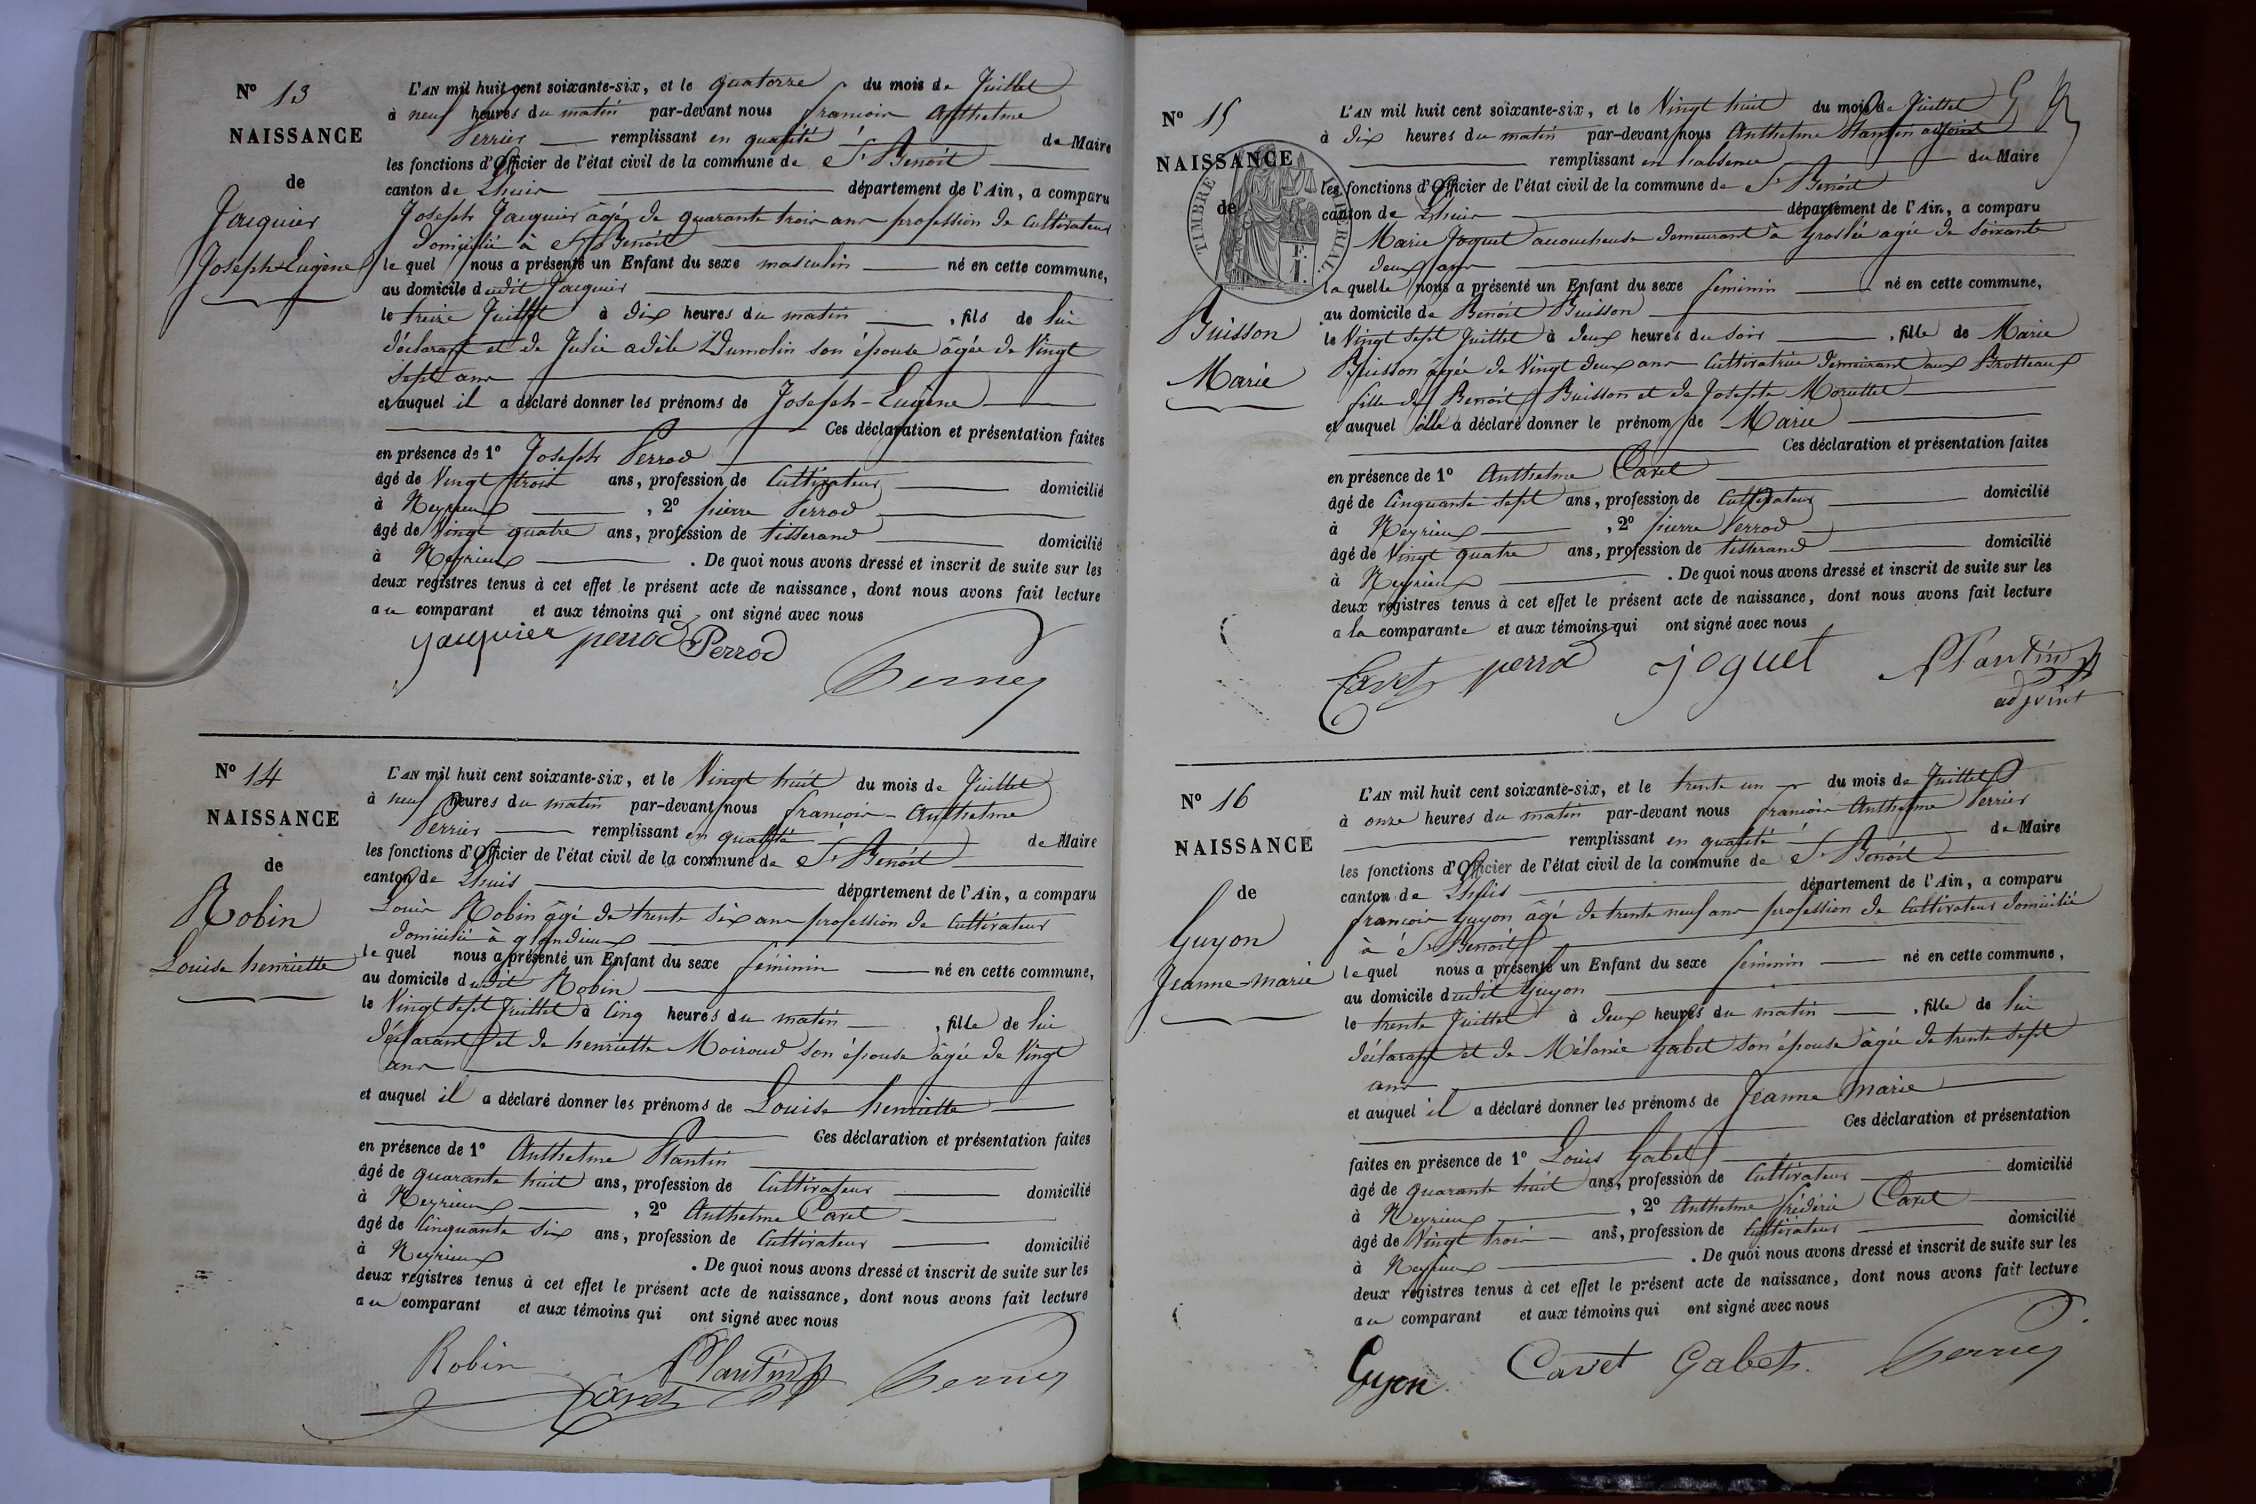 N° 13
NAISSANCE
de
Jacquier
Joseph-Eugène
L'AN mil huit cent soixante-six, et le quatorze du mois de Juillet
à neuf heures du matin par-devant nous françois Anthelme
Perrier remplissant en qualité de Maire
les fonctions d'Officier de l'état civil de la commune de St Benoit
canton de Lhuis département de l'Ain, a comparu
Joseph Jacquier âgé de quarante trois ans profession de Cultivateur
domicilié à St Benoit
le quel nous a présenté un Enfant du sexe masculin né en cette commune,
au domicile dudit Jacquier
le treize Juillet à dix heures du matin, fils de lui
déclarant et de Julie adèle Dumolin son épouse âgée de Vingt
sept ans
et auquel il a déclaré donner les prénoms de Joseph-Eugène
Ces déclaration et présentation faites
en présence de 1° Joseph Perrod
âgé de Vingt trois ans, profession de Cultivateur domicilié
à Neyrieux, 2° pierre Perrod
âgé de Vingt quatre ans, profession de tisserand domicilié
à Neyrieux. De quoi nous avons dressé et inscrit de suite sur les
deux registres tenus à cet effet le présent acte de naissance, dont nous avons fait lecture
au comparant et aux témoins qui ont signé avec nous
jacquier perrod Perrod
Perrier
N° 14
NAISSANCE
de
Robin
Louise henriette
L'AN mil huit cent soixante-six, et le Vingt huit du mois de Juillet
à neuf heures du matin par-devant nous françois-Anthelme
Perrier remplissant en qualité de Maire
les fonctions d'Officier de l'état civil de la commune de St Benoit
canton de Lhuis département de l'Ain, a comparu
Louis Robin âgé de trente six ans profession de Cultivateur
domicilié à glandieux
le quel nous a présenté un Enfant du sexe féminin né en cette commune,
au domicile dudit Robin
le Vingt sept Juillet à Cinq heures du matin, fille de lui
déclarant et de henriette Moiroud son épouse âgée de Vingt
ans
et auquel il a déclaré donner les prénoms de Louise henriette
Ces déclaration et présentation faites
en présence de 1° Anthelme Plantin
âgé de quarante huit ans, profession de Cultivateur domicilié
à Neyrieux, 2° Anthelme Cavet
âgé de Cinquante six ans, profession de Cultivateur domicilié
à Neyrieux. De quoi nous avons dressé et inscrit de suite sur les
deux registres tenus à cet effet le présent acte de naissance, dont nous avons fait lecture
au comparant et aux témoins qui ont signé avec nous
Robin Plantin
Cavet Perrier
N° 15
NAISSANCE
de
TIMBRE IMPÉRIAL
Buisson
Marie
L'AN mil huit cent soixante-six, et le Vingt huit du mois de Juillet
à dix heures du matin par-devant nous Anthelme Plantin adjoint
remplissant en l'absence du Maire
les fonctions d'Officier de l'état civil de la commune de St Benoit
canton de Lhuis département de l'Ain, a comparu
Marie Joguet accoucheuse demeurant à Groslée agée de Soixante
deux ans
la quelle nous a présenté un Enfant du sexe féminin né en cette commune,
au domicile de Benoit Buisson
le Vingt sept Juillet à deux heures du soir, fille de Marie
Buisson âgée de Vingt deux ans Cultivatrice demeurant aux Brotteaux
fille de Benoit Buisson et de Josephte Morellet
et auquel elle a déclaré donner le prénom de Marie
Ces déclaration et présentation faites
en présence de 1° Anthelme Cavet
âgé de Cinquante sept ans, profession de Cultivateur domicilié
à Neyrieux, 2° pierre Perrod
âgé de Vingt quatre ans, profession de tisserand domicilié
à Neyrieux. De quoi nous avons dressé et inscrit de suite sur les
deux registres tenus à cet effet le présent acte de naissance, dont nous avons fait lecture
a la comparante et aux témoins qui ont signé avec nous
Cavet perrod joguet Plantin
adjoint
N° 16
NAISSANCE
de
Guyon
Jeanne-marie
L'AN mil huit cent soixante-six, et le trente un du mois de Juillet
à onze heures du matin par-devant nous françois Anthelme Perrier
remplissant en qualité de Maire
les fonctions d'Officier de l'état civil de la commune de St Benoit
canton de Lhuis département de l'Ain, a comparu
françois Guyon âgé de trente neuf ans profession de Cultivateur domicilié
à St Benoit
le quel nous a présenté un Enfant du sexe féminin né en cette commune,
au domicile dudit Guyon
le trente Juillet à deux heures du matin, fille de lui
déclarant et de Mélanie Gabet son épouse âgée de trente sept
ans
et auquel il a déclaré donner les prénoms de Jeanne marie
Ces déclaration et présentation
faites en présence de 1° Louis Gabet
âgé de quarante huit ans, profession de Cultivateur domicilié
à Neyrieux, 2° Anthelme frédéric Cavet
âgé de Vingt trois ans, profession de Cultivateur domicilié
à Neyrieux. De quoi nous avons dressé et inscrit de suite sur les
deux registres tenus à cet effet le présent acte de naissance, dont nous avons fait lecture
au comparant et aux témoins qui ont signé avec nous
Guyon Cavet Gabet Perrier